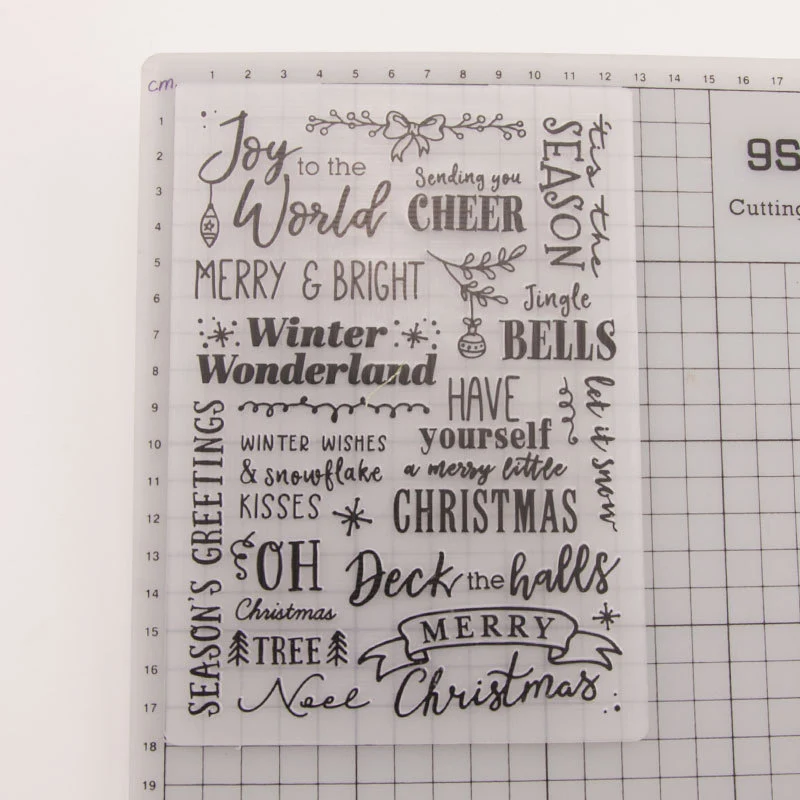 cm.
1 2 3 4 5 6 7 8 9 10 11 12 13 14 15 16 17
1
2
3
4
5
6
7
8
9
10
11
12
13
14
15
16
17
18
19
Joy
to the
World
Sending you
CHEER
'tis the
SEASON
MERRY & BRIGHT
Jingle
BELLS
Winter
Wonderland
HAVE
yourself
a merry little
CHRISTMAS
let it snow
SEASON'S GREETINGS
WINTER WISHES
& snowflake
KISSES
OH
Christmas
TREE
Deck the halls
MERRY
Christmas
Noel
9S
Cutting